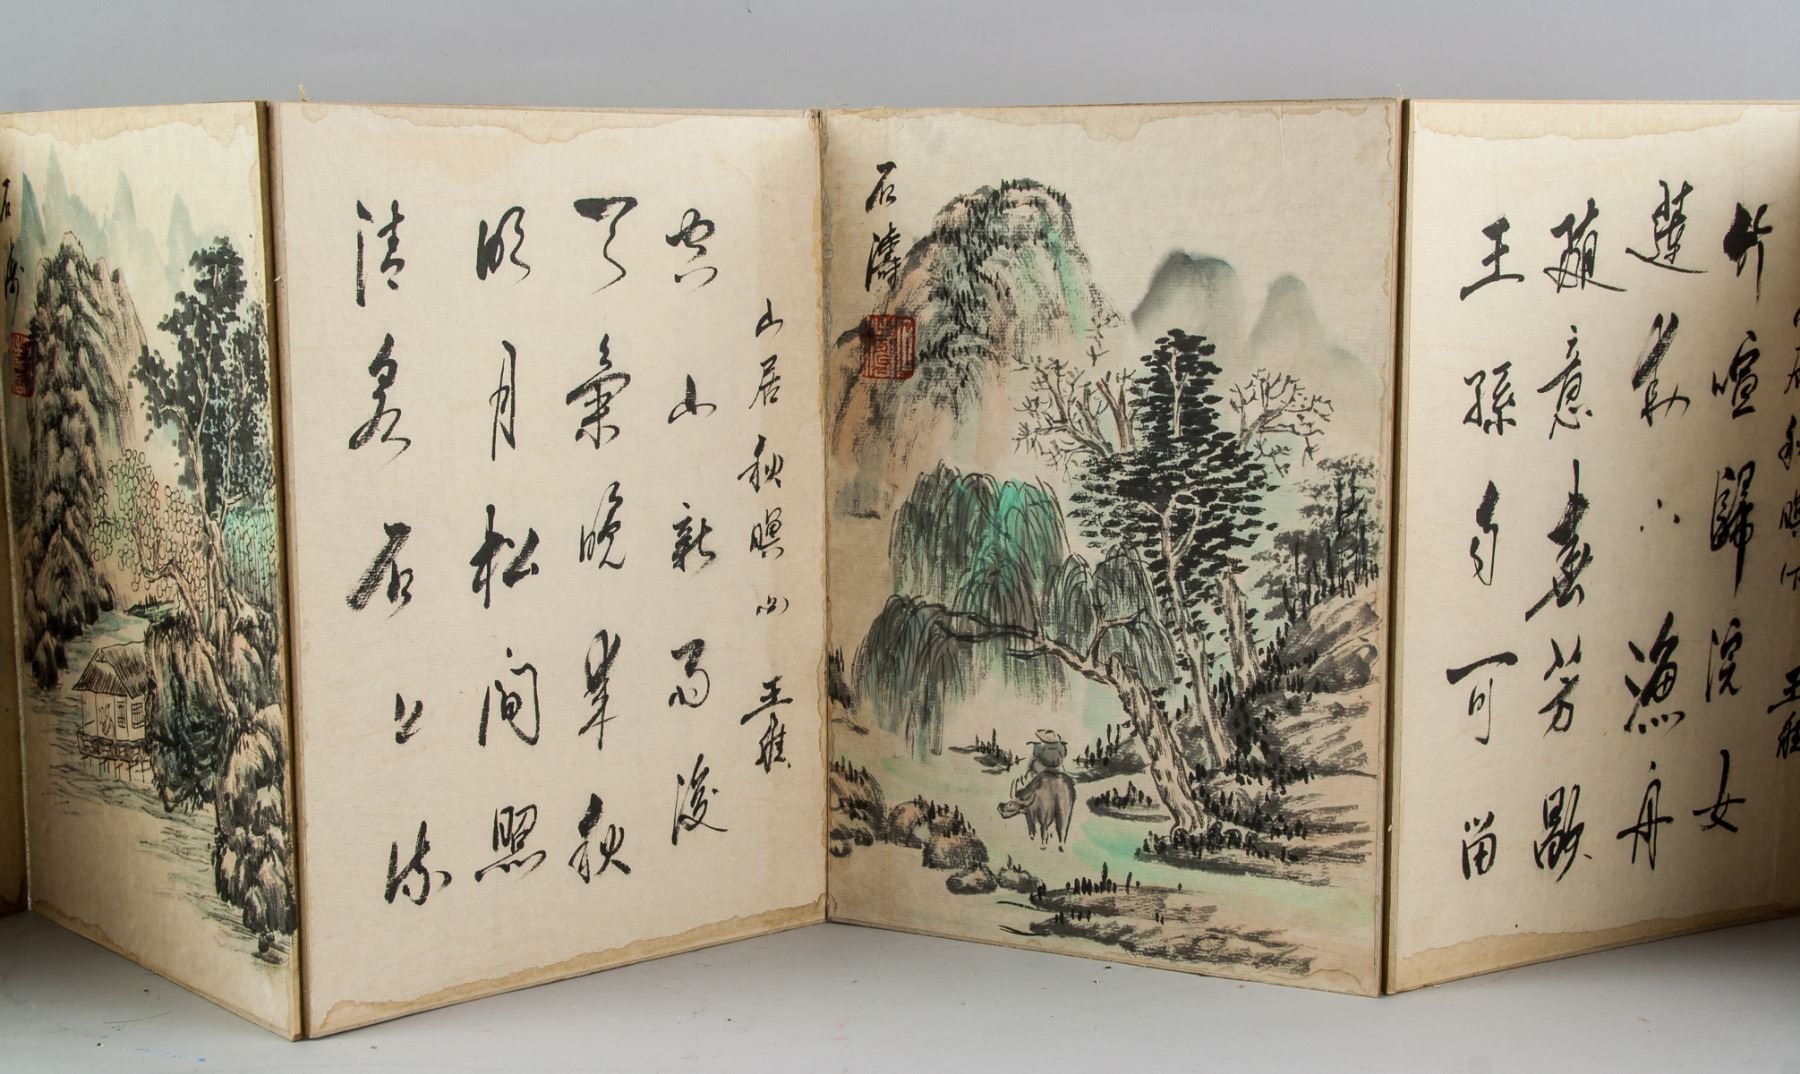 石濤
山居秋暝上 王維
空山新雨後
天氣晚來秋
明月松間照
清泉石上流
石濤
山居秋暝下 王維
竹喧歸浣女
蓮動下漁舟
隨意春芳歇
王孫自可留